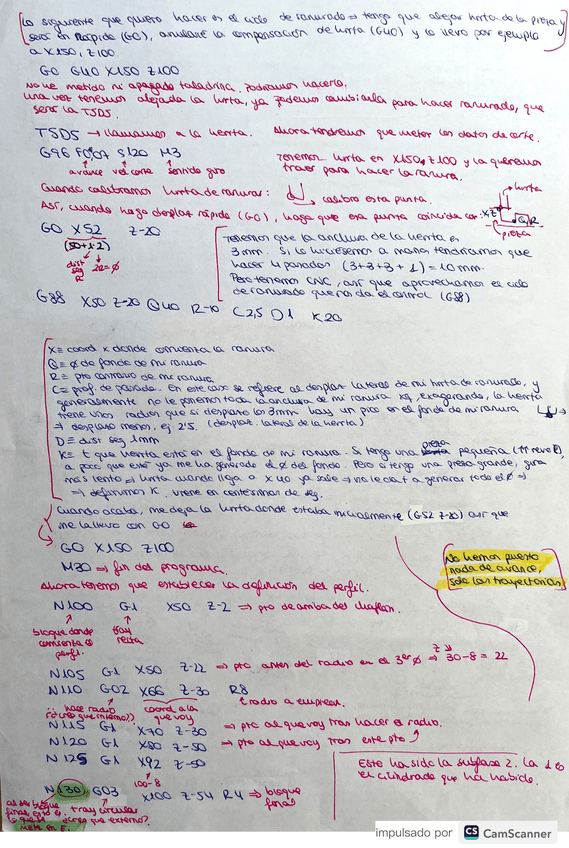 Lo siguiente que quiero hacer es el ciclo de ranurado ⇒ tengo que alejar hrrta de la pieza y
será en rápido (G0), anularé la compensación de hrrta (G40) y lo llevo por ejemplo
a X150, Z100.
G0 G40 X150 Z100
No he metido ni apagado taladrina. Podríamos hacerlo.
Una vez tenemos alejada la hrrta, ya podemos cambiarla para hacer ranurado, que
será la T5D5.
T5D5 → llamamos a la herrta. Ahora tendremos que meter los datos de corte.
G96 F0,07 S120 M3
avance vel corte sentido giro
Tenemos hrrta en X150 y Z100 y la queremos
traer para hacer la ranura.
Cuando calibramos hrrta de ranurar: calibro esta punta.
Así, cuando hago desplaz rápido (G0), hago que esa punta coincida con X,Z
hrrta
Q,R
pieza
G0 X52 Z-20
(50+1·2)
dist seg 2=Ø
Tenemos que la anchura de la herrta es
3mm. Si lo hiciésemos a mano tendríamos que
hacer 4 pasadas (3+3+3+1)=10mm.
Pero tenemos CNC, así que aprovechamos el ciclo
de ranurado que nos da el control (G88)
G88 X50 Z-20 Q40 R-10 C2,5 D1 K20
X= coord x donde comienza la ranura
Q= Ø de fondo de mi ranura
R= pto contrario de mi ranura
C= prof. de pasada. En este caso se refiere al desplaz lateral de mi hrrta de ranurado, y
generalmente no le ponemos toda la anchura de mi ranura xq, exagerando, la herrta
tiene unos radios que si desplazo los 3mm hay un pico en el fondo de mi ranura
⇒ desplazo menos, ej. 2'5. (desplaz. lateral de la herrta)
D= dist seg 1mm
K= t que herrta está en el fondo de mi ranura. Si tengo una pieza pequeña (↑↑ rev),
a poco que esté ya me ha generado el Ø del fondo. Pero si tengo una pieza grande, gira
más lento ⇒ hrrta cuando llega a X40 ya sale ⇒ no le da t a generar todo el Ø ⇒
⇒ definimos K. viene en centésimas de seg.
Cuando acaba, me deja la hrrta donde estaba inicialmente (G52 Z-20) así que
me la llevo con G0
G0 X150 Z100
M30 ⇒ fin del programa.
No hemos puesto
nada de avance,
solo las trayectorias
Ahora tenemos que establecer la definición del perfil.
N100 G1 X50 Z-2 ⇒ pto de arriba del chaflán.
bloque donde comienza el perfil.
tray recta
N105 G1 X50 Z-22 ⇒ pto antes del radio en el 3er Ø ⇒ 30-8=22
N110 G02 X66 Z-30 R8
hace radio
coord. a la que voy
radio a emplear.
N115 G1 X70 Z-30 ⇒ pto al que voy tras hacer el radio.
N120 G1 X80 Z-50 ⇒ pto al que voy tras este pto
N125 G1 X92 Z-50
100-8
Esta ha sido la subfase 2. La 1 es
el cilindrado que ha habido.
N130 G03 X100 Z-54 R4 ⇒ bloque final
tray circular
impulsado por CS CamScanner